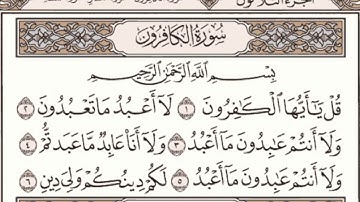 الجزء الثلاثون
سُورَةُ الكَافِرُونَ
بِسْمِ اللَّهِ الرَّحْمَٰنِ الرَّحِيمِ
قُلْ يَٰٓأَيُّهَا ٱلْكَٰفِرُونَ ١ لَآ أَعْبُدُ مَا تَعْبُدُونَ ٢
وَلَآ أَنتُمْ عَٰبِدُونَ مَآ أَعْبُدُ ٣ وَلَآ أَنَا۠ عَابِدٌ مَّا عَبَدتُّمْ ٤
وَلَآ أَنتُمْ عَٰبِدُونَ مَآ أَعْبُدُ ٥ لَكُمْ دِينُكُمْ وَلِىَ دِينِ ٦